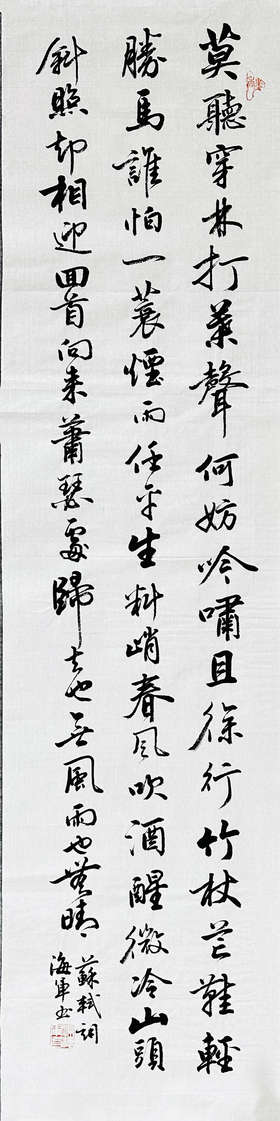 莫聽穿林打葉聲何妨吟嘯且徐行竹杖芒鞋輕
勝馬誰怕一蓑煙雨任平生料峭春風吹酒醒微冷山頭
斜照却相迎回首向來蕭瑟處歸去也無風雨也無晴
蘇軾詞
海軍书